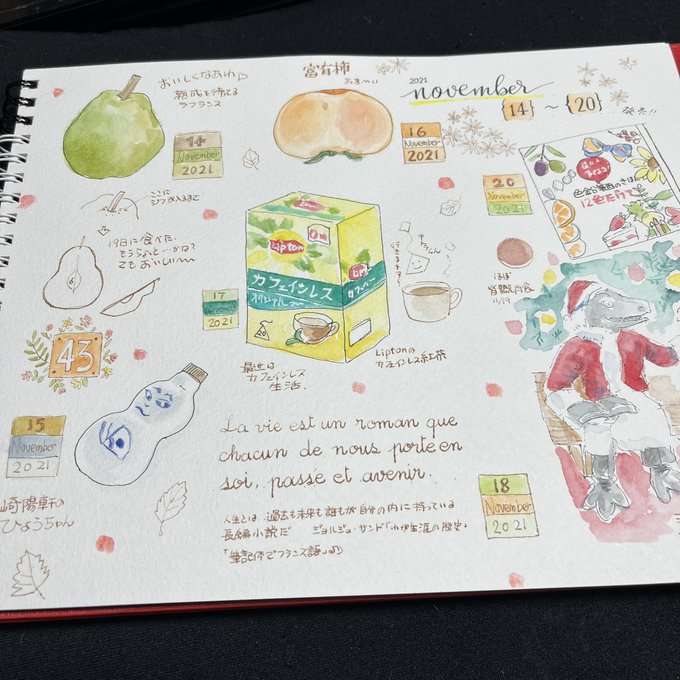 おいしくなあれ
熟成を待てる
ラフランス
富有柿
あまーい
2021
november
{14} ~ {20}
発売!!
14
November
2021
16
November
2021
20
November
2021
12色だけで
ここに
シワが入るまで
19日に食べた。
もうちょっといかな?
でもおいしい〜
17
November
2021
Lipton
カフェインレス
Lipton
カフェ
ほぼ
皆既月食
11/19
43
最近は
カフェインレス
生活。
Liptonの
カフェインレス紅茶
15
November
2021
崎陽軒の
ひょうちゃん
La vie est un roman que
chacun de nous porte en
soi, passé et avenir.
人生とは 過去も未来も誰もが自分の内に持っている
長編小説だ ジョルジュ・サンド「わが生涯の歴史」
「筆記体でフランス語」より
18
November
2021